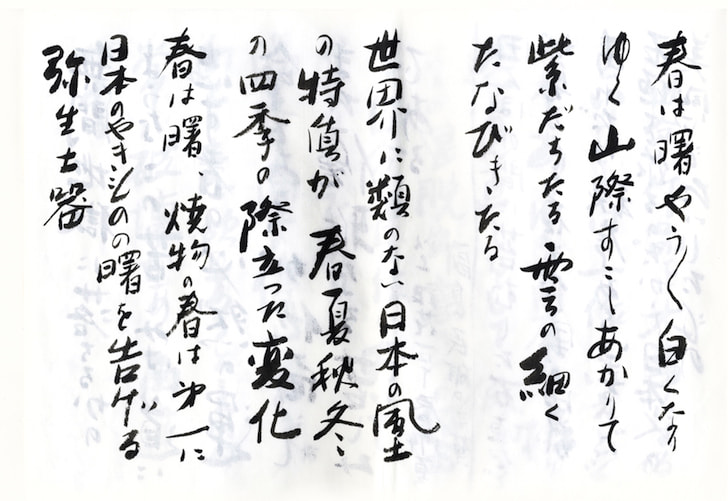 春は曙やう〱白くなり
ゆく山際すこしあかりて
紫だちたる雲の細く
たなびきたる
世界に類のない日本の風土
の特質が春夏秋冬
の四季の際立った変化
春は曙、焼物の春は才一に
日本のやきものの曙を告げる
弥生土器